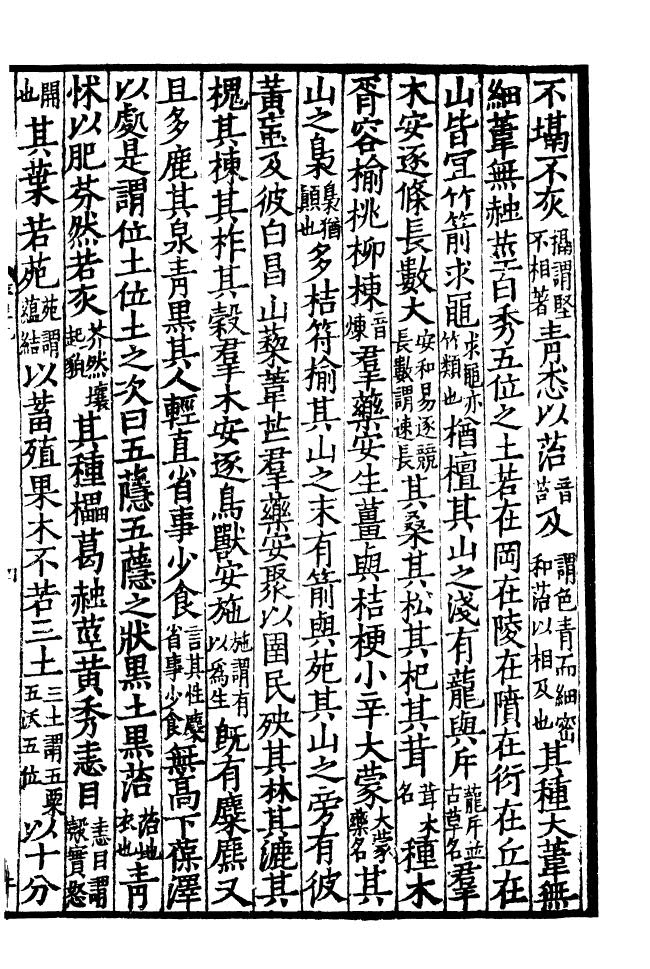 不塥不灰塥謂堅不相著青恷以菭音苔及謂色青而細密和菭以相及也其種大葦無
細葦無赨莖白秀五位之土若在岡在陵在隫在衍在丘在
山皆宜竹箭求黽求黽亦竹類也楢檀其山之淺有蘢與斥蘢斥並古草名羣
木安逐條長數大安和易逐競長數謂速長其桑其松其杞其茸茸木名種木
胥容榆桃柳楝音煉羣藥安生薑與桔梗小辛大蒙大蒙藥名其
山之梟梟猶顛也多桔符榆其山之末有箭與苑其山之旁有彼
黃䖟及彼白昌山藜葦芒羣藥安聚以圉民殃其林其漉其
槐其楝其柞其穀羣木安逐鳥獸安施施謂有以爲生旣有麋麃又
且多鹿其泉靑黑其人輕直省事少食言其性麋省事少食無高下葆澤
以處是謂位土位土之次曰五蘟五蘟之狀黑土黑菭菭地衣也青
怵以肥芬然若灰芥然壤起貌其種櫑葛赨莖黃秀恚目恚目謂穀實怒
開也其葉若苑苑謂蘊結以蓄殖果木不若三土三土謂五粟五沃五位以十分